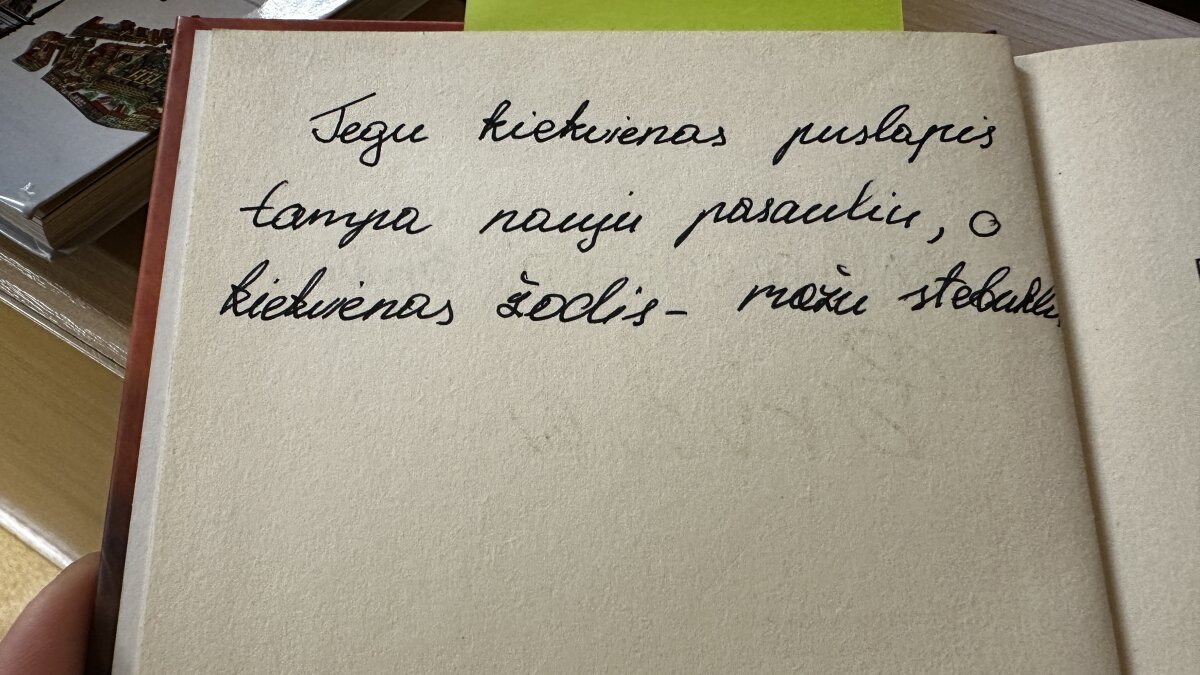 Tegu kiekvienas puslapis
tampa nauju pasauliu, o
kiekvienas žodis- mažu stebuklu